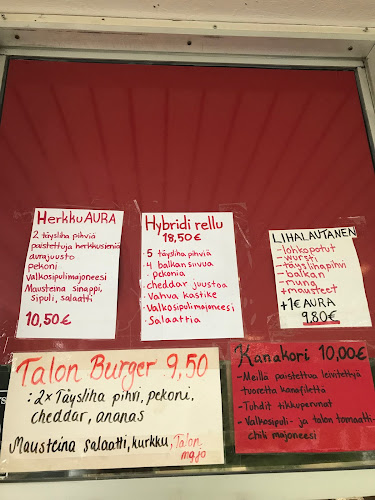 Herkku AURA
2 täysliha pihviä
paistettuja herkkusieniä
aurajuusto
pekoni
valkosipulimajoneesi
Mausteina sinappi,
sipuli, salaatti
10,50€
Hybridi rellu
18,50€
· 5 täysliha pihviä
· 4 balkan siivua
· pekonia
· cheddar juustoa
· Vahva kastike
· Valkosipulimajoneesi
· Salaattia
LIHALAUTANEN
- lohkopotut
- wursti
- täyslihapihvi
- balkan
- muna
+ mausteet
+1€ AURA
9.80€
Talon Burger 9,50
: 2x Täysliha pihvi, pekoni,
cheddar, ananas
Mausteina salaatti, kurkku, Talon
majo
Kanakori 10,00€
- Meillä paistettua leivitettyä
tuoretta kanafilettä
- Tuhdit tikkuperunat
- Valkosipuli- ja talon tomaatti-
chili majoneesi